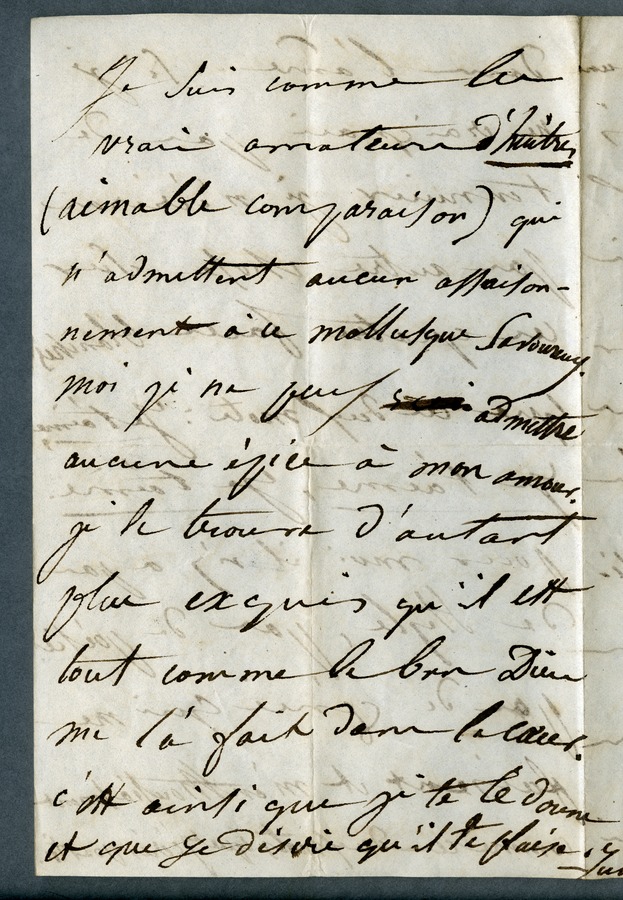 Je suis comme les
vrais amateurs d'huitres
(aimable comparaison) qui
n'admettent aucun assaison-
nement à ce mollusque savoureux.
moi je ne peux admettre
aucune épice à mon amour.
je le trouve d'autant
plus exquis qu'il est
tout comme le bon Dieu
me l'a fait dans le cœur.
c'est ainsi que je te le donne
et que je désire qu'il te plaise.